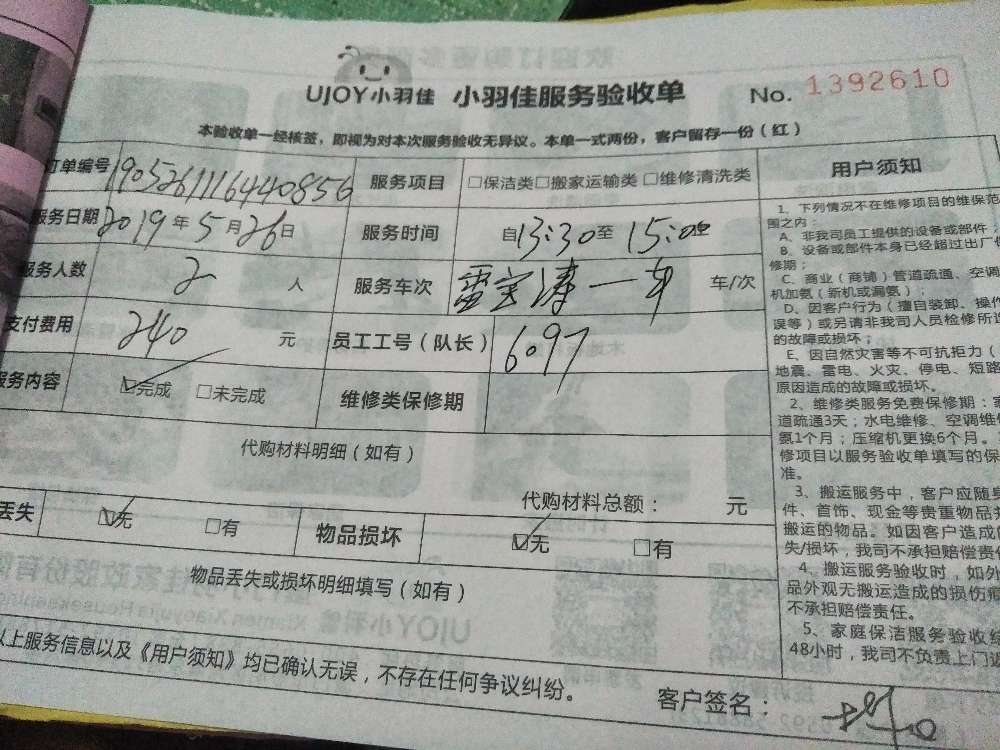 UJOY小羽佳 小羽佳服务验收单 No. 1392610
本验收单一经核签，即视为对本次服务验收无异议。本单一式两份，客户留存一份（红）
订单编号 1905261116440856 服务项目 □保洁类□搬家运输类 □维修清洗类
服务日期 2019年5月26日 服务时间 自13:30至15:00
服务人数 2 人 服务车次 一车 车/次
支付费用 240 元 员工工号（队长） 6097
服务内容 ☑完成 □未完成 维修类保修期
代购材料明细（如有）
代购材料总额： 元
丢失 ☑无 □有 物品损坏 ☑无 □有
物品丢失或损坏明细填写（如有）
以上服务信息以及《用户须知》均已确认无误，不存在任何争议纠纷。
客户签名：
用户须知
1、下列情况不在维修项目的维保范
围之内：
A、非我司员工提供的设备或部件；
B、设备或部件本身已经超过出厂保
修期；
C、商业（商铺）管道疏通、空调
机加氨（新机或漏氨）；
D、因客户行为（擅自装卸、操作
误等）或另请非我司人员检修所造
的故障或损坏；
E、因自然灾害等不可抗拒力（
地震、雷电、火灾、停电、短路
原因造成的故障或损坏。
2、维修类服务免费保修期：家
道疏通3天；水电维修、空调维修
氨1个月；压缩机更换6个月。
修项目以服务验收单填写的保
准。
3、搬运服务中，客户应随身
件、首饰、现金等贵重物品
搬运的物品。如因客户造成
失/损坏，我司不承担赔偿责任
4、搬运服务验收时，如外
品外观无搬运造成的损伤痕
不承担赔偿责任。
5、家庭保洁服务验收结
48小时，我司不负责上门返